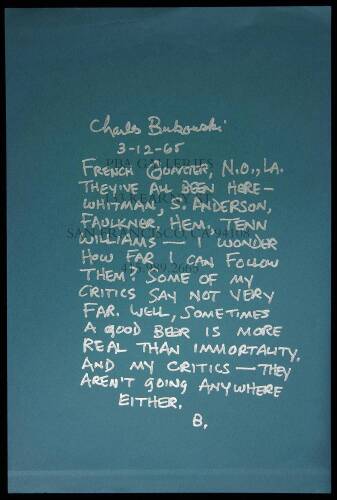 Charles Bukowski
3-12-65
FRENCH QUARTER, N.O., LA.
THEY'VE ALL BEEN HERE—
WHITMAN, S. ANDERSON,
FAULKNER, HEM, TENN
WILLIAMS — I WONDER
HOW FAR I CAN FOLLOW
THEM? SOME OF MY
CRITICS SAY NOT VERY
FAR. WELL, SOMETIMES
A GOOD BEER IS MORE
REAL THAN IMMORTALITY,
AND MY CRITICS — THEY
AREN'T GOING ANYWHERE
EITHER.
B.
PBA GALLERIES
SAN FRANCISCO CA 94108
415.989.2665